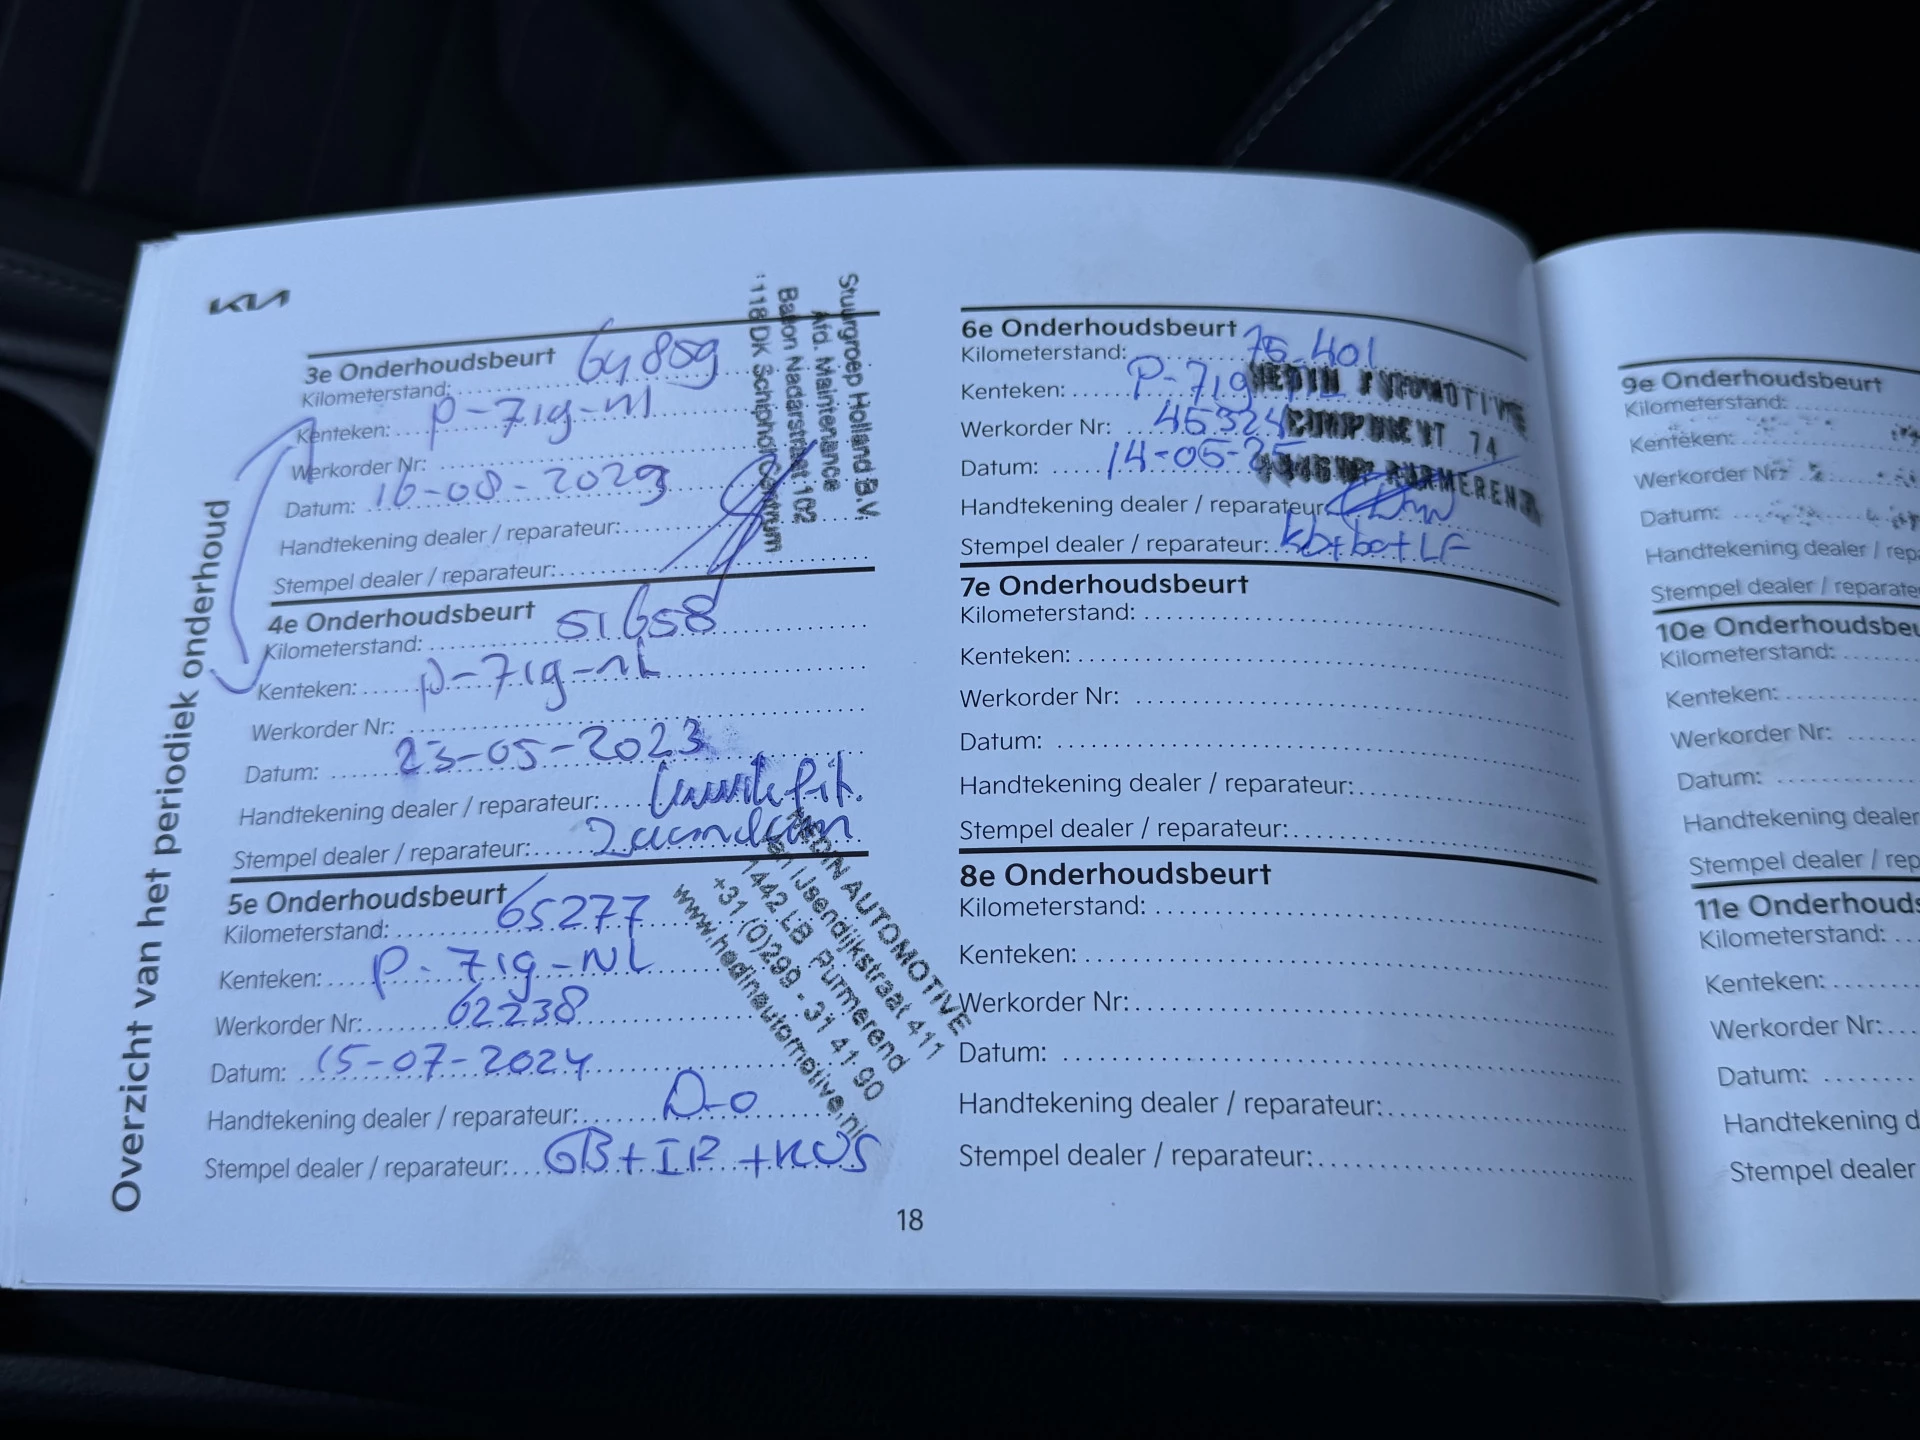 KIA
Overzicht van het periodiek onderhoud
3e Onderhoudsbeurt
Kilometerstand: 64809
Kenteken: P-719-nl
Werkorder Nr:
Datum: 16-08-2023
Handtekening dealer / reparateur:
Stempel dealer / reparateur:
Stuurgroep Holland B.V.
Afd. Maintenance
Baron Nadarstraat 102
1118 DK Schiphol Centrum
4e Onderhoudsbeurt
Kilometerstand: 51658
Kenteken: p-719-nL
Werkorder Nr:
Datum: 23-05-2023
Handtekening dealer / reparateur: kwik fit.
Stempel dealer / reparateur: Zaandam
5e Onderhoudsbeurt
Kilometerstand: 65277
Kenteken: P-719-NL
Werkorder Nr: 62238
Datum: 15-07-2024
Handtekening dealer / reparateur:
Stempel dealer / reparateur: GB+IR+KUS
HEDIN AUTOMOTIVE
van IJsendijkstraat 411
1442 LB Purmerend
+31 (0)299 - 31 41 90
www.hedinautomotive.nl
6e Onderhoudsbeurt
Kilometerstand: 75-401
Kenteken: P-719
Werkorder Nr: 45324
Datum: 14-05-25
Handtekening dealer / reparateur
Stempel dealer / reparateur: kb+bo+LF
HEDIN AUTOMOTIVE
COMPONENT 74
PURMEREND
7e Onderhoudsbeurt
Kilometerstand:
Kenteken:
Werkorder Nr:
Datum:
Handtekening dealer / reparateur:
Stempel dealer / reparateur:
8e Onderhoudsbeurt
Kilometerstand:
Kenteken:
Werkorder Nr:
Datum:
Handtekening dealer / reparateur:
Stempel dealer / reparateur:
18
9e Onderhoudsbeurt
Kilometerstand:
Kenteken:
Werkorder Nr:
Datum:
Handtekening dealer / rep
Stempel dealer / reparate
10e Onderhoudsbeu
Kilometerstand:
Kenteken:
Werkorder Nr:
Datum:
Handtekening dealer
Stempel dealer / rep
11e Onderhouds
Kilometerstand:
Kenteken:
Werkorder Nr:
Datum:
Handtekening d
Stempel dealer